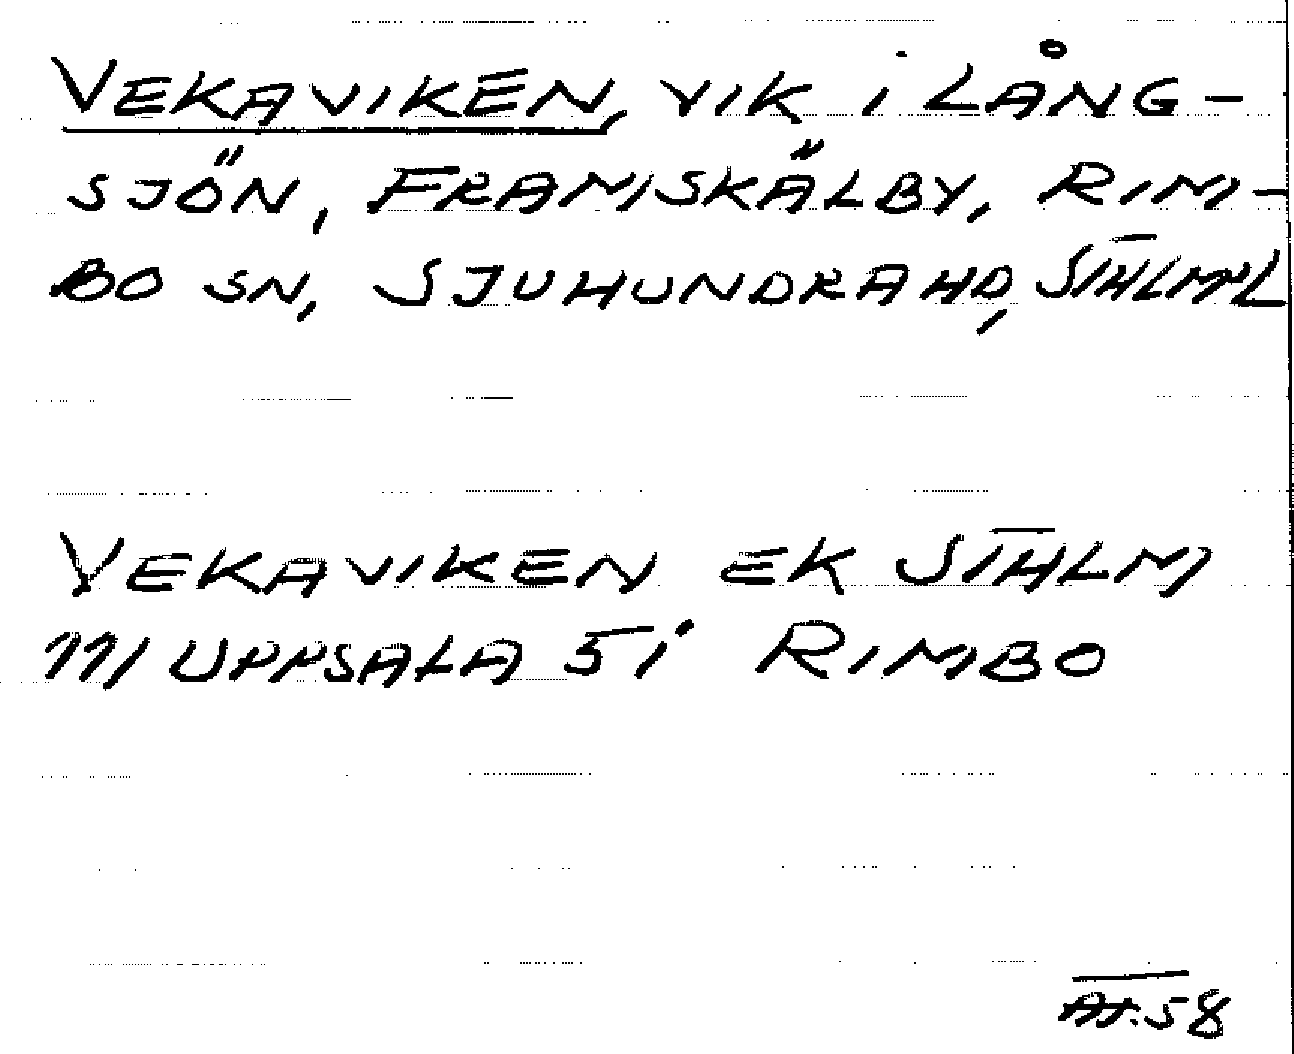 VEKAVIKEN, VIK i LÅNG-
SJÖN, FRAMSKÄLBY, RIM-
BO SN, SJUHUNDRA HD, STHLMS L
VEKAVIKEN EK STHLM
111 UPPSALA 51 RIMBO